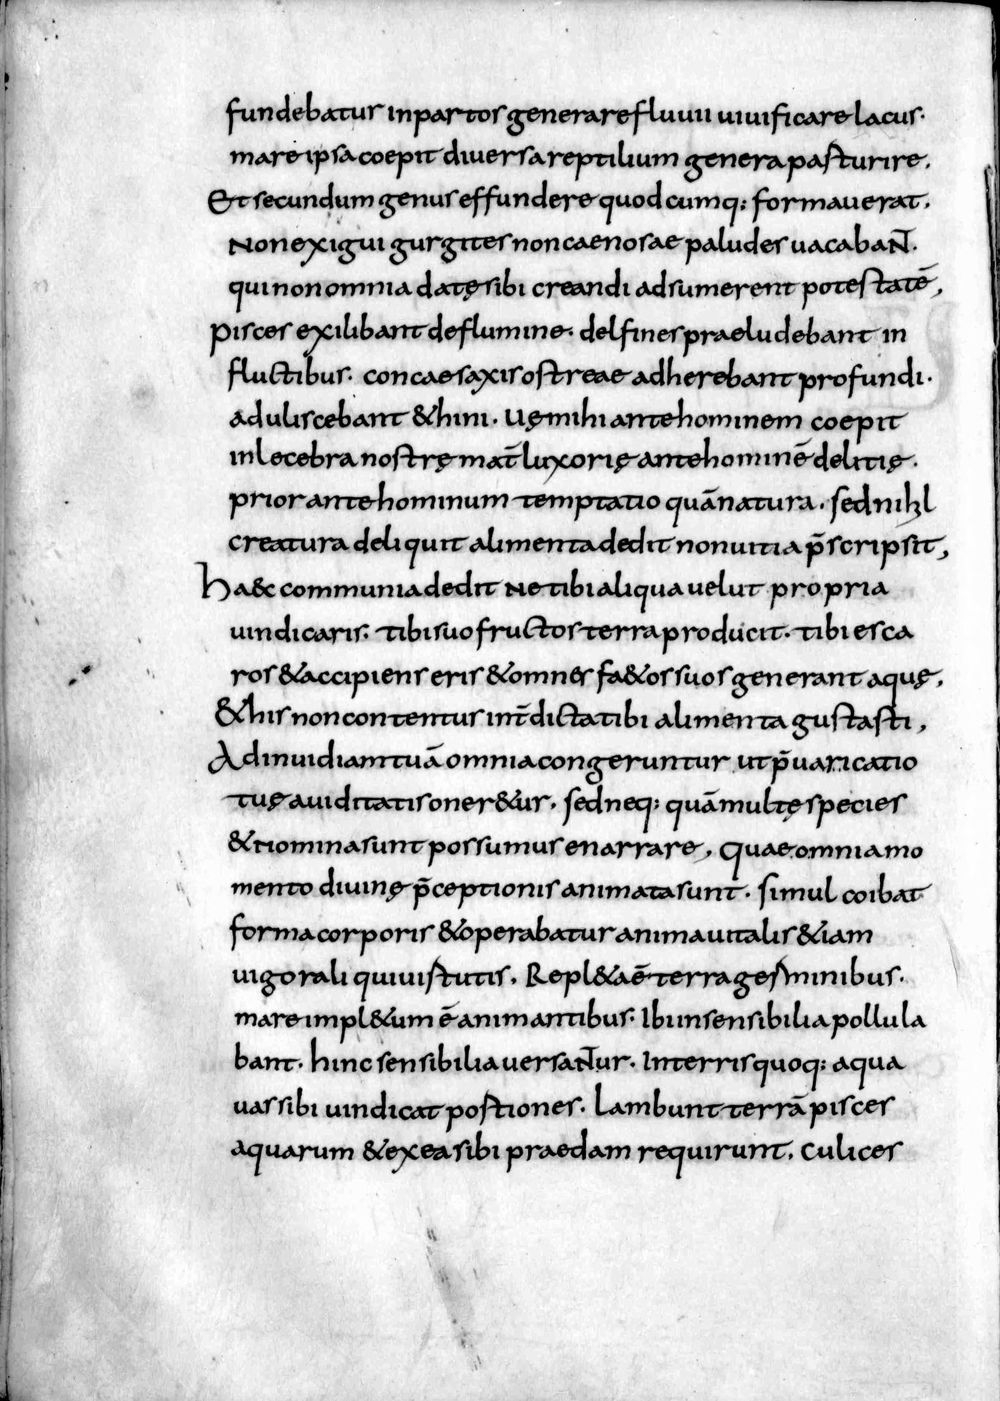 fundebatur inpartos generare fluuii uiuificare lacus·
mare ipsa coepit diuersa reptilium genera pasturire.
Et secundum genus effundere quod cumq; formauerat.
Non exigui gurgites non caenosae paludes uacabaNT·
qui non omnia datę sibi creandi adsumerent potestatē,
Pisces exilibant deflumine· delfines praeludebant in
fluctibus· concae saxis ostreae adherebant profundi·
aduliscebant &hini· Uęmihi ante hominem coepit
inlecebra nostrę mat̄ luxorię ante hominē delitię·
prior ante hominum temptatio quā natura· sed nihl
creatura deliquit alimenta dedit non uitia p̄scripsit,
ha&c communia dedit Ne tibi aliqua uelut propria
uindicaris· tibi suo fructos terra producit· tibi esca
ros &accipiens eris &omnes fa&os suos generant aquę,
&his non contentus int̄dicta tibi alimenta gustasti,
Ad inuidiam tuā omnia congeruntur ut p̄uaricatio
tuę auiditatis oner&ur· sed neq; quā multę species
&Nomina sunt possumus enarrare, Quae omnia mo
mento diuinę p̄ceptionis animata sunt· simul coibat
forma corporis &operabatur anima uitalis &iam
uigorali qui uistutis, Repl&a ē terra gesminibus·
mare impl&um ē animantibus· Ibi insensibilia pollula
bant· hinc sensibilia uersaNTur· Interris quoq; aqua
uas sibi uindicat postiones· Lambunt terrā pisces
aquarum &exea sibi praedam requirunt, Culices